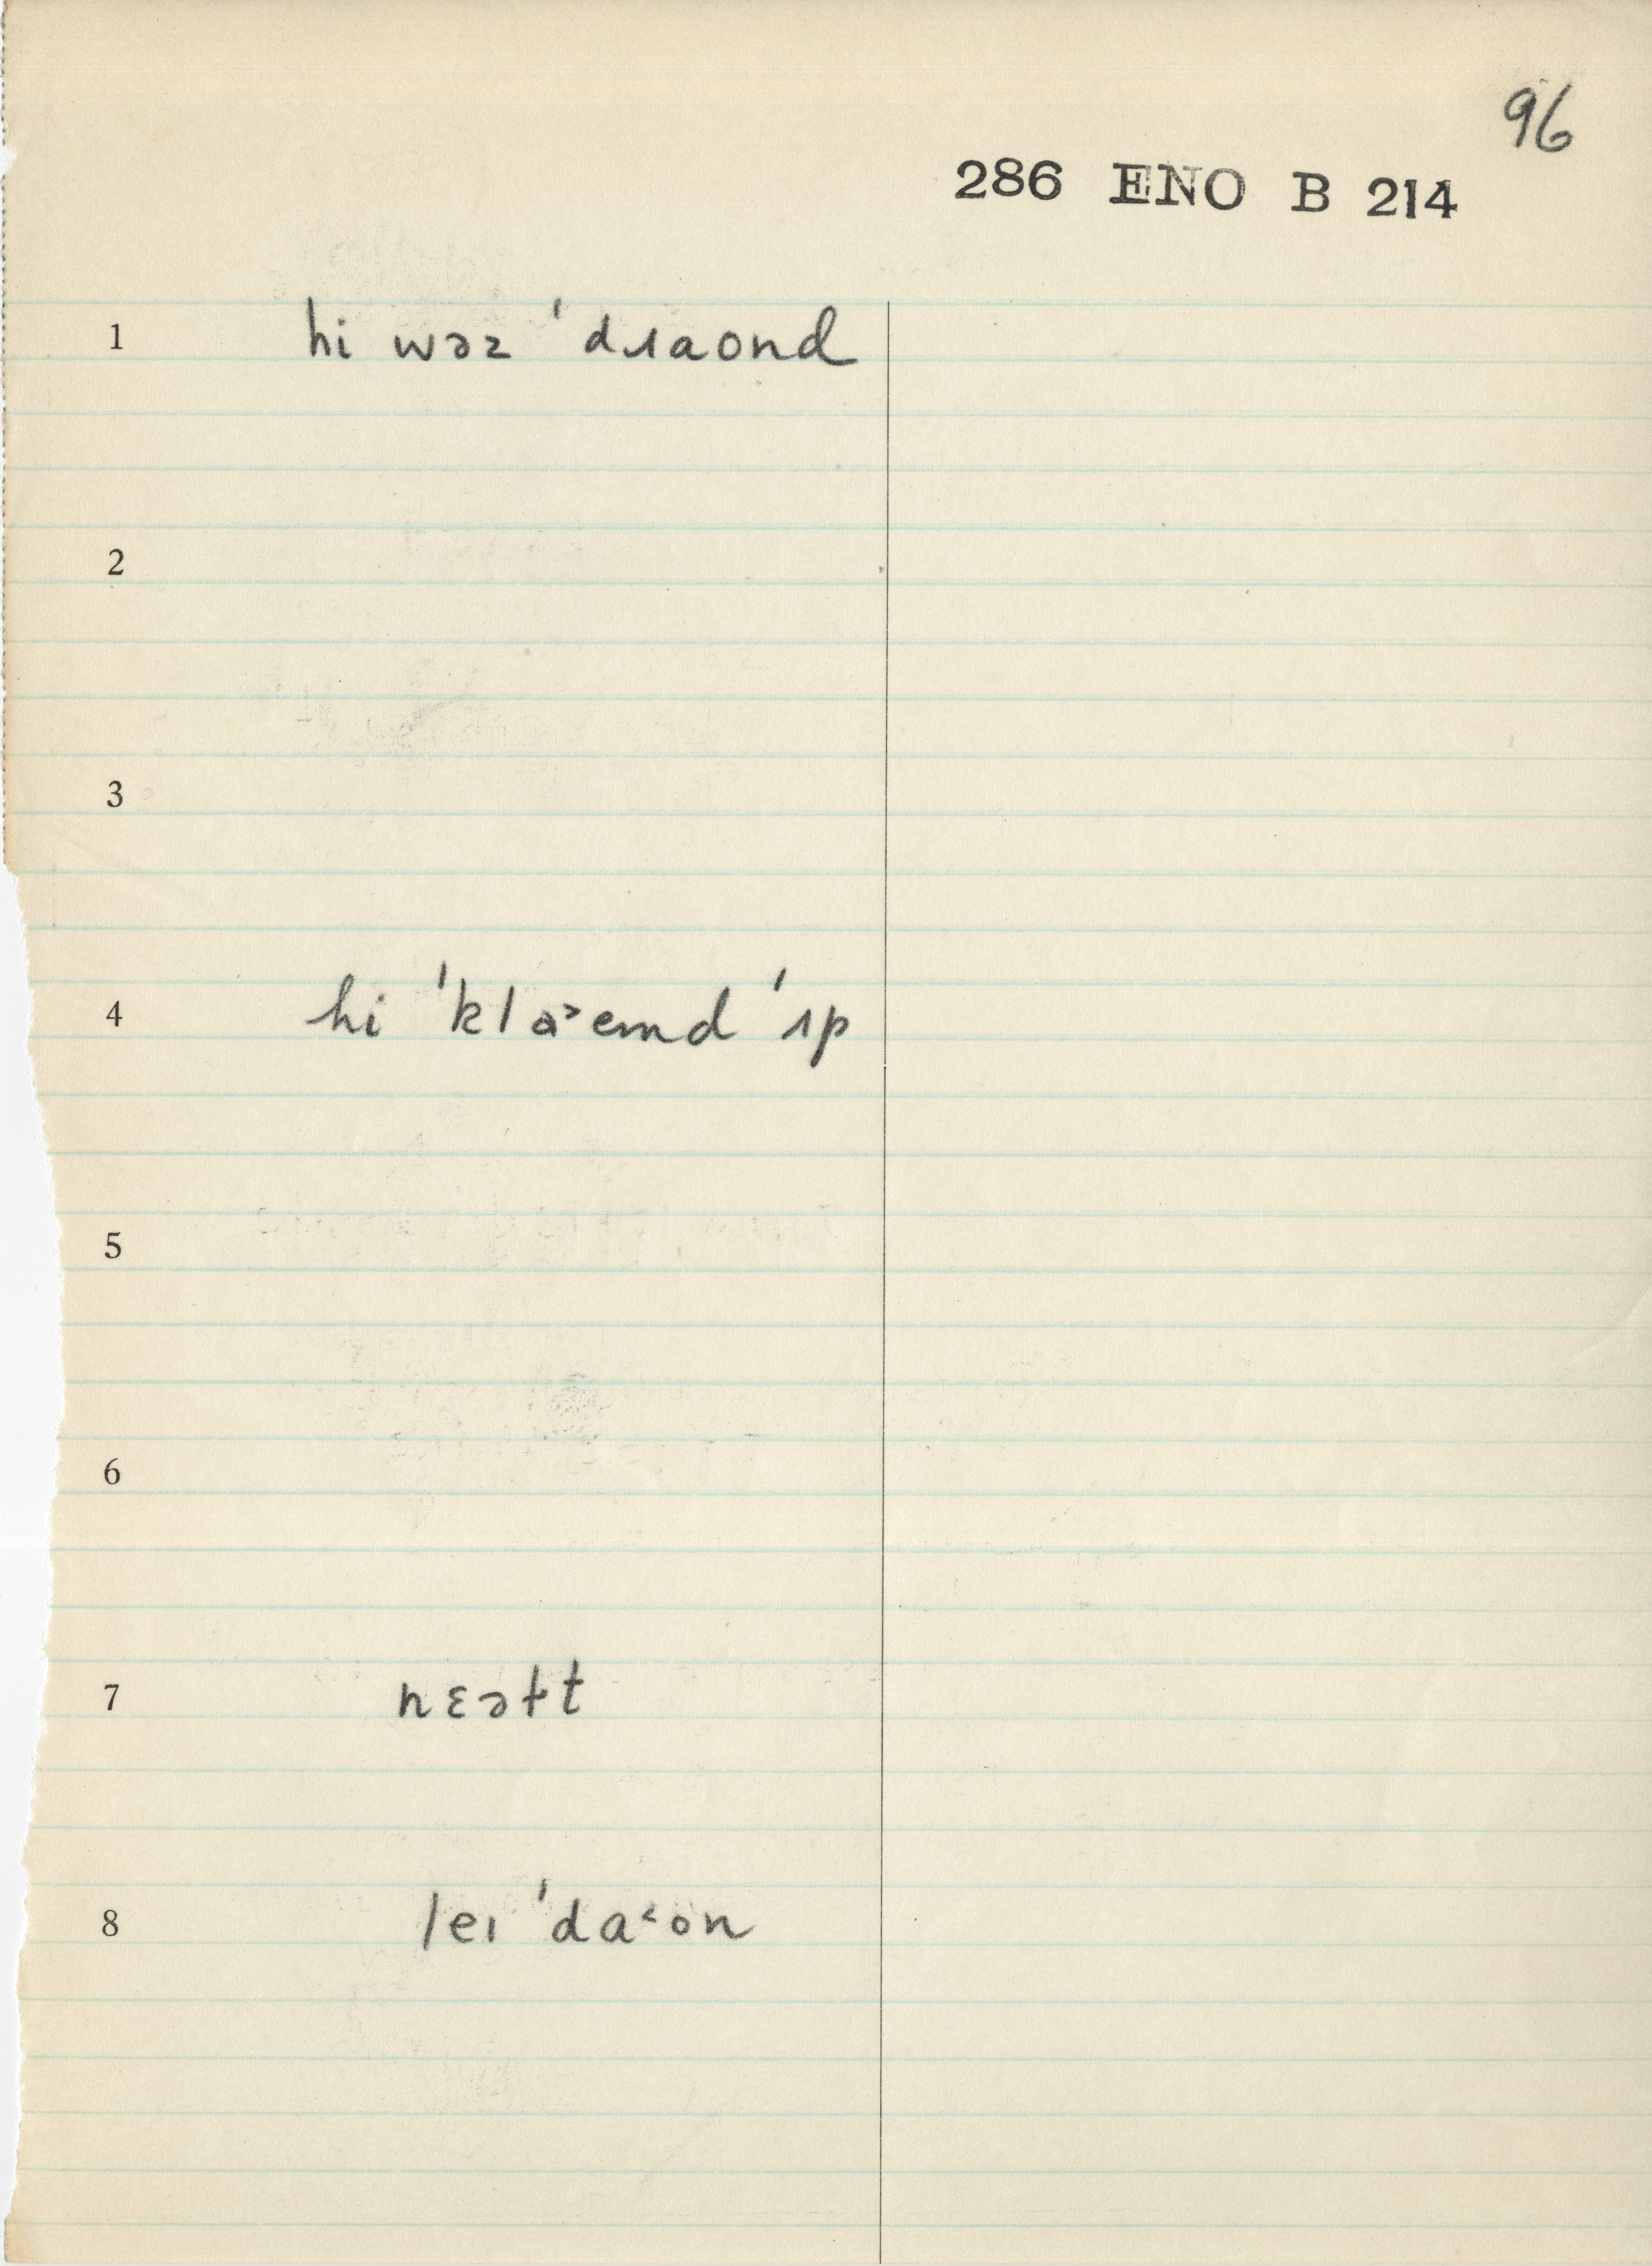 96
286 ENO B 214
1 hi wəz ˈdɹaond
2
3
4 hi ˈklɑ˃emd ˈɪp
5
6
7 nɛəɫt
8 leɪ ˈda˂on